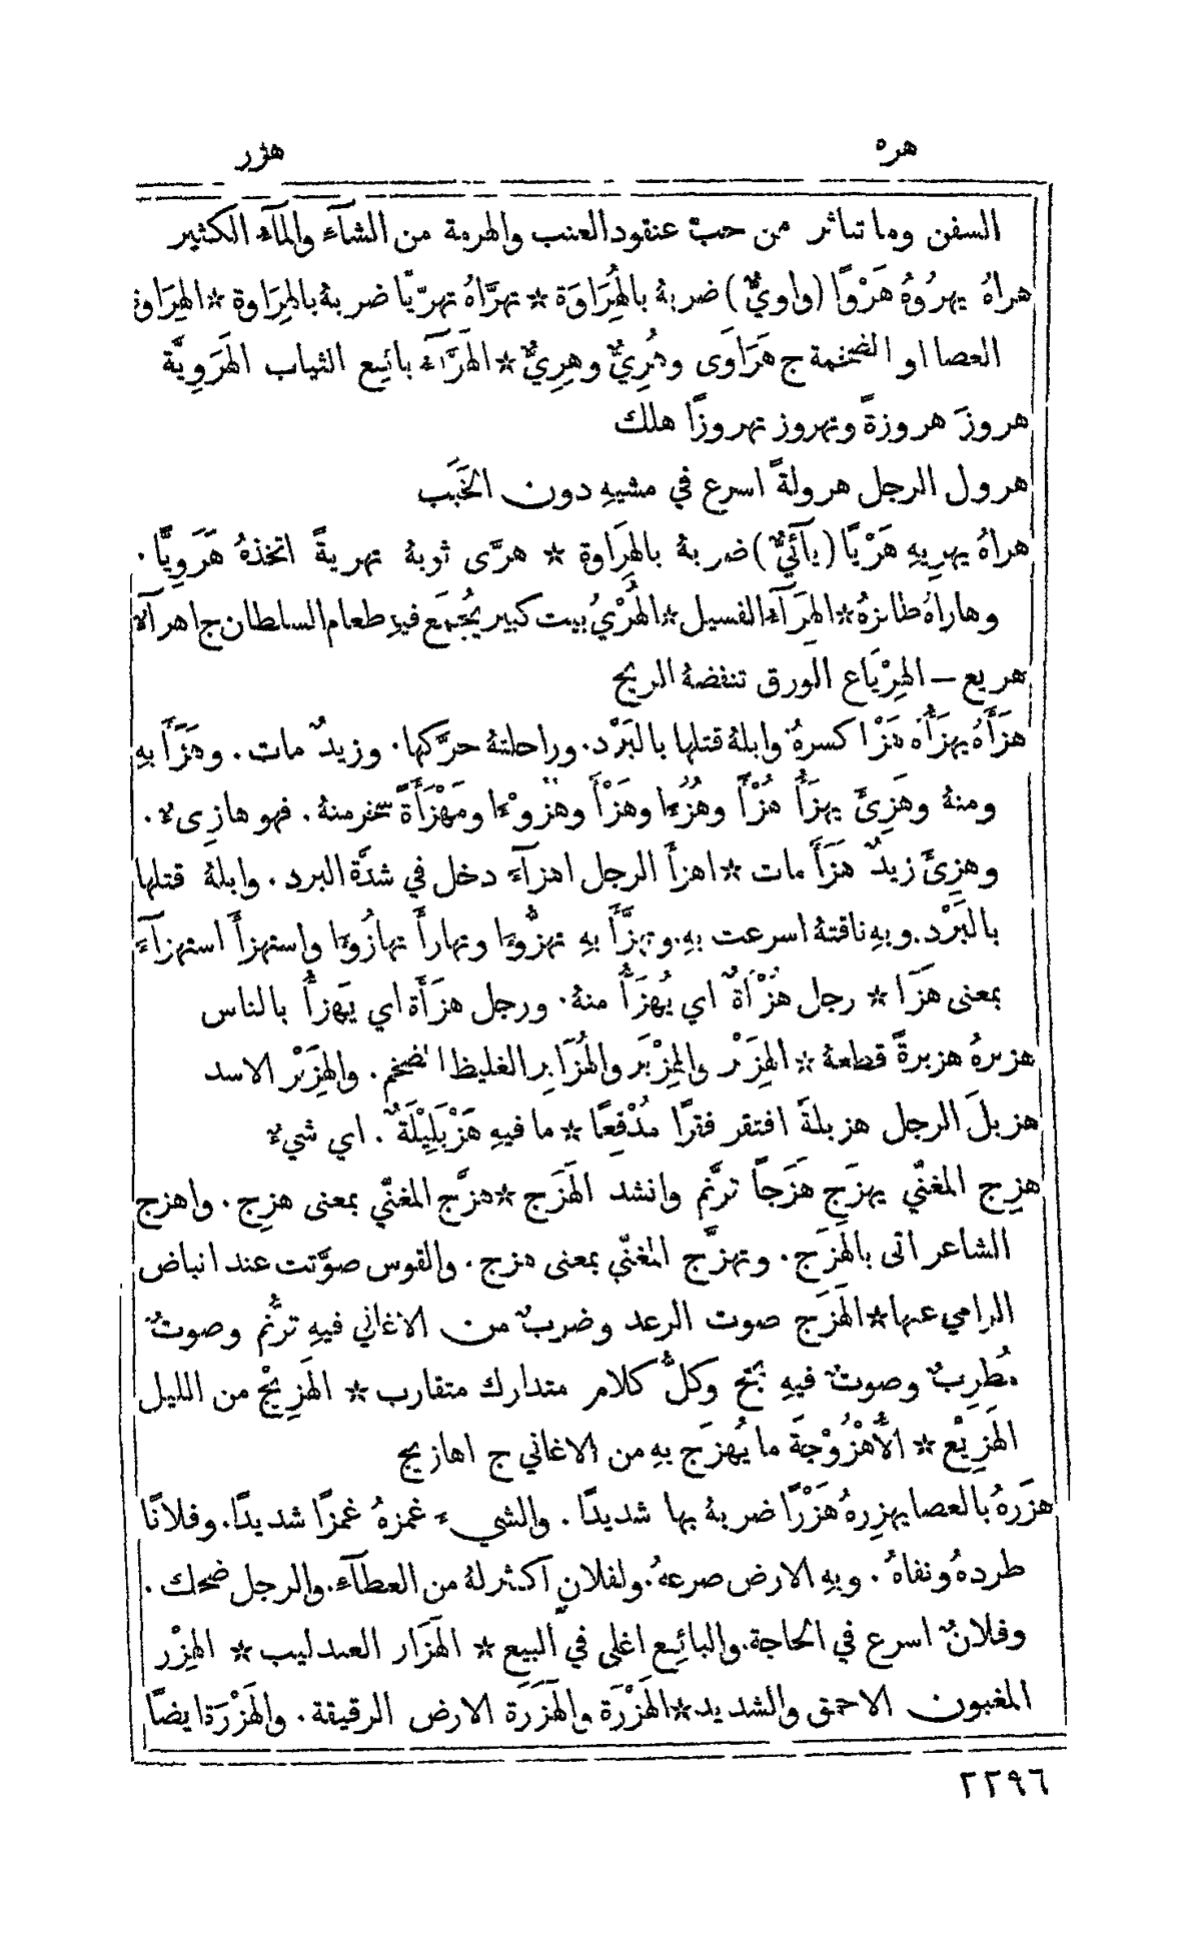 هره
هزر
السفن وما تناثر من حبّ عنقود العنب والهرمة من الشآءَ والمآءَ الكثير
هراهُ يهرُوهُ هَرْوًا (واويٌّ) ضربهُ بالهُرَاوَة * تهرَّاهُ تهرّيًا ضربهُ بالهِرَاوة * الهِرَاوة
العصا او الضخمة ج هَرَاوَى وهُرِيٌّ وهِرِيٌّ * الهَرَّآءَ بائِع الثياب الهَرَوِيَّة
هروزَ هروزةً وتهروز تهروزًا هلك
هرول الرجل هرولةً اسرع في مشيهِ دون الخَبَب
هراهُ يهرِيهِ هَرْيًا (يآئيٌّ) ضربهُ بالهِرَاوة * هرَّى ثوبهُ تهريةً اتخذهُ هَرَوِيًّا.
وهاراهُ طانزهُ * الهِرَآءَ الفسيل * الهُرْيُ بيت كبير يُجمَع فيهِ طعام السلطان ج اهرآءٌ
هريع – الهِرْيَاع الورق تنفضهُ الريح
هزَأَهُ يهزَأُهُ هَزْأ كسرهُ. وابلهُ قتلها بالبَرْد. وراحلتهُ حرَّكها. وزيدٌ مات. وهَزَأَ بهِ
ومنهُ وهَزِئَ يهزَأُ هُزْأً وهُزُءًا وهَزْأً وهُزُوْءًا ومَهْزَأَةً سخر منهُ. فهو هازِىءٌ.
وهزِئَ زيدٌ هَزَأً مات * اهزأَ الرجل اهزآءً دخل في شدَّة البرد. وابلهُ قتلها
بالبَرْد. وبهِ ناقتهُ اسرعت بهِ. وتهزَّأَ بهِ تهزُّؤًا وتهازأَ تهازُوءًا واستهزأَ استهزآءً
بمعنى هَزَأ * رجل هُزْأَةٌ اي يُهزَأُ منهُ. ورجل هزَأَة اي يَهزأُ بالناس
هزبرهُ هزبرةً قطعهُ * الهِزَبْر والهِزْبَر والهُزَابِر الغليظ الضخم. والهِزَبْر الاسد
هزبلَ الرجل هزبلةً افتقر فقرًا مُدْقِعًا * ما فيهِ هَزْبَلِيْلَةٌ. اي شيءٌ
هزِج المغنّي يهزَج هَزَجًا ترنَّم وانشد الهَزَج * هزَّج المغنّي بمعنى هزِج. واهزج
الشاعر اتى بالهَزَج. وتهزَّج المغنّي بمعنى هزج. والقوس صوَّتت عند انباض
الرامي عنها * الهَزَج صوت الرعد وضربٌ من الاغاني فيهِ ترنُّم وصوتٌ
مُطرِبٌ وصوتٌ فيهِ بَحَح وكلُّ كلام متدارك متقارب * الهَزِيْج من الليل
الهَزِيْع * الأُهْزُوْجَة ما يُهزَج بهِ من الاغاني ج اهازيج
هزَرهُ بالعصا يهزِرهُ هَزْرًا ضربهُ بها شديدًا. والشيءَ غمزهُ غمزًا شديدًا. وفلانًا
طردهُ ونفاهُ. وبهِ الارض صرعهُ. ولفلانٍ اكثر لهُ من العطآءِ. والرجل ضحك.
وفلانٌ اسرع في الحاجة. والبائِع اغلى في البيع * الهَزَار العندليب * الهِزْر
المغبون الاحمق والشديد * الهَزْرَة والهَزَرَة الارض الرقيقة. والهَزْرَة ايضًا
٢٢٩٦